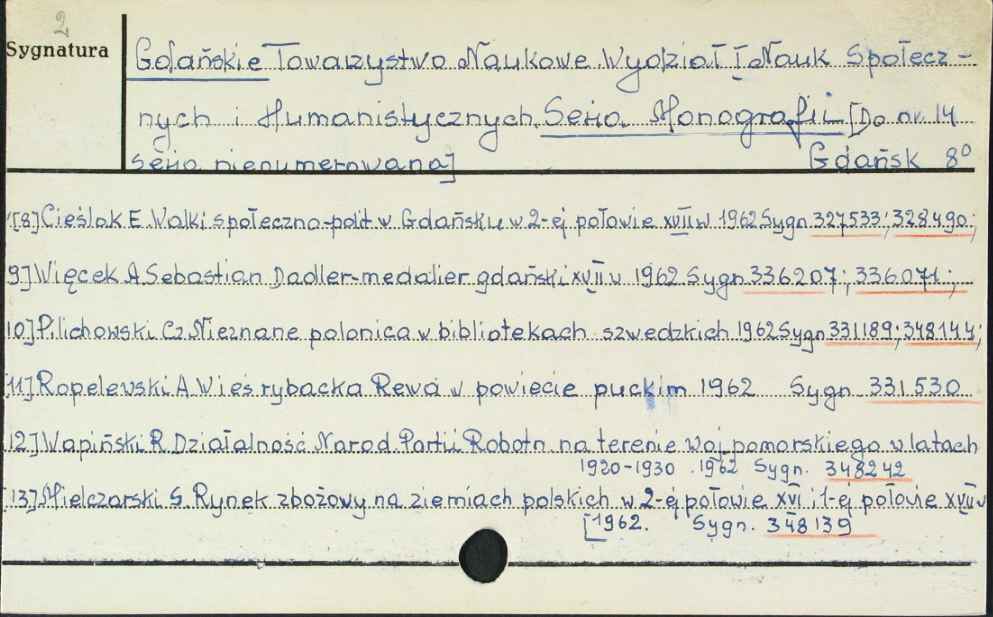 2
Sygnatura
Gdańskie Towarzystwo Naukowe. Wydział I Nauk Społecz-
nych i Humanistycznych. Seria Monografii [Do nr. 14
seria nienumerowana] Gdańsk 8°
[8] Cieślak E. Walki społeczno-polit. w Gdańsku w 2-ej połowie XVII w 1962 Sygn. 327533; 328490;
9] Więcek A. Sebastian Dadler-medalier gdański XVII w 1962 Sygn 336207; 336071;
10] Pilichowski Cz. Nieznane polonica w bibliotekach szwedzkich 1962 Sygn 331189; 348144;
[11] Ropelewski A. Wieś rybacka Rewa w powiecie puckim 1962 Sygn. 331530
12] Wapiński R. Działalność Narod. Partii Robotn. na terenie woj. pomorskiego w latach
1920-1930. 1962 Sygn. 348242
[13] Mielczarski S. Rynek zbożowy na ziemiach polskich w 2-ej połowie XVI i 1-ej połowie XVII w
[1962. Sygn. 348139